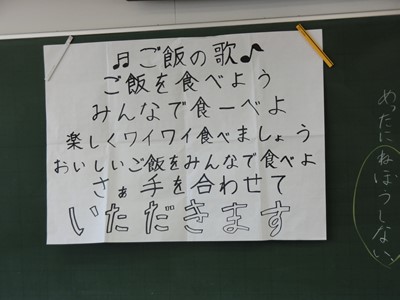 ♬ご飯の歌♪
ご飯を食べよう
みんなで食ーべよ
楽しくワイワイ食べましょう
おいしいご飯をみんなで食べよ
さぁ 手を合わせて
いただきます
めったにねぼうしない